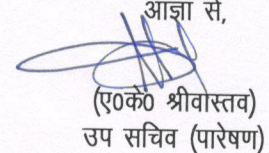 आज्ञा से,
(ए०के० श्रीवास्तव)
उप सचिव (पारेषण)